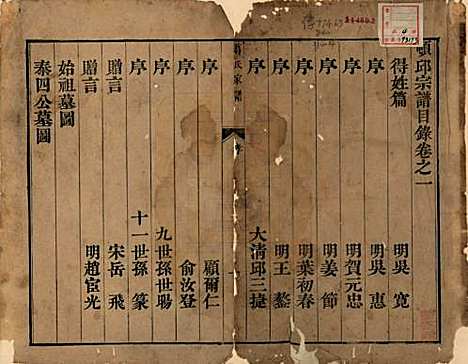 頓邱宗譜目錄卷之一
得姓篇 明吳寬
序 明吳惠
序 明賀元忠
序 明姜節
序 明葉初春
序 明王鏊
序 大清邱三捷
氏家譜
序 顧爾仁
序 俞汝登
序 九世孫世暘
序 十一世孫篆
贈言 宋岳飛
贈言 明趙宦光
始祖墓圖
泰四公墓圖